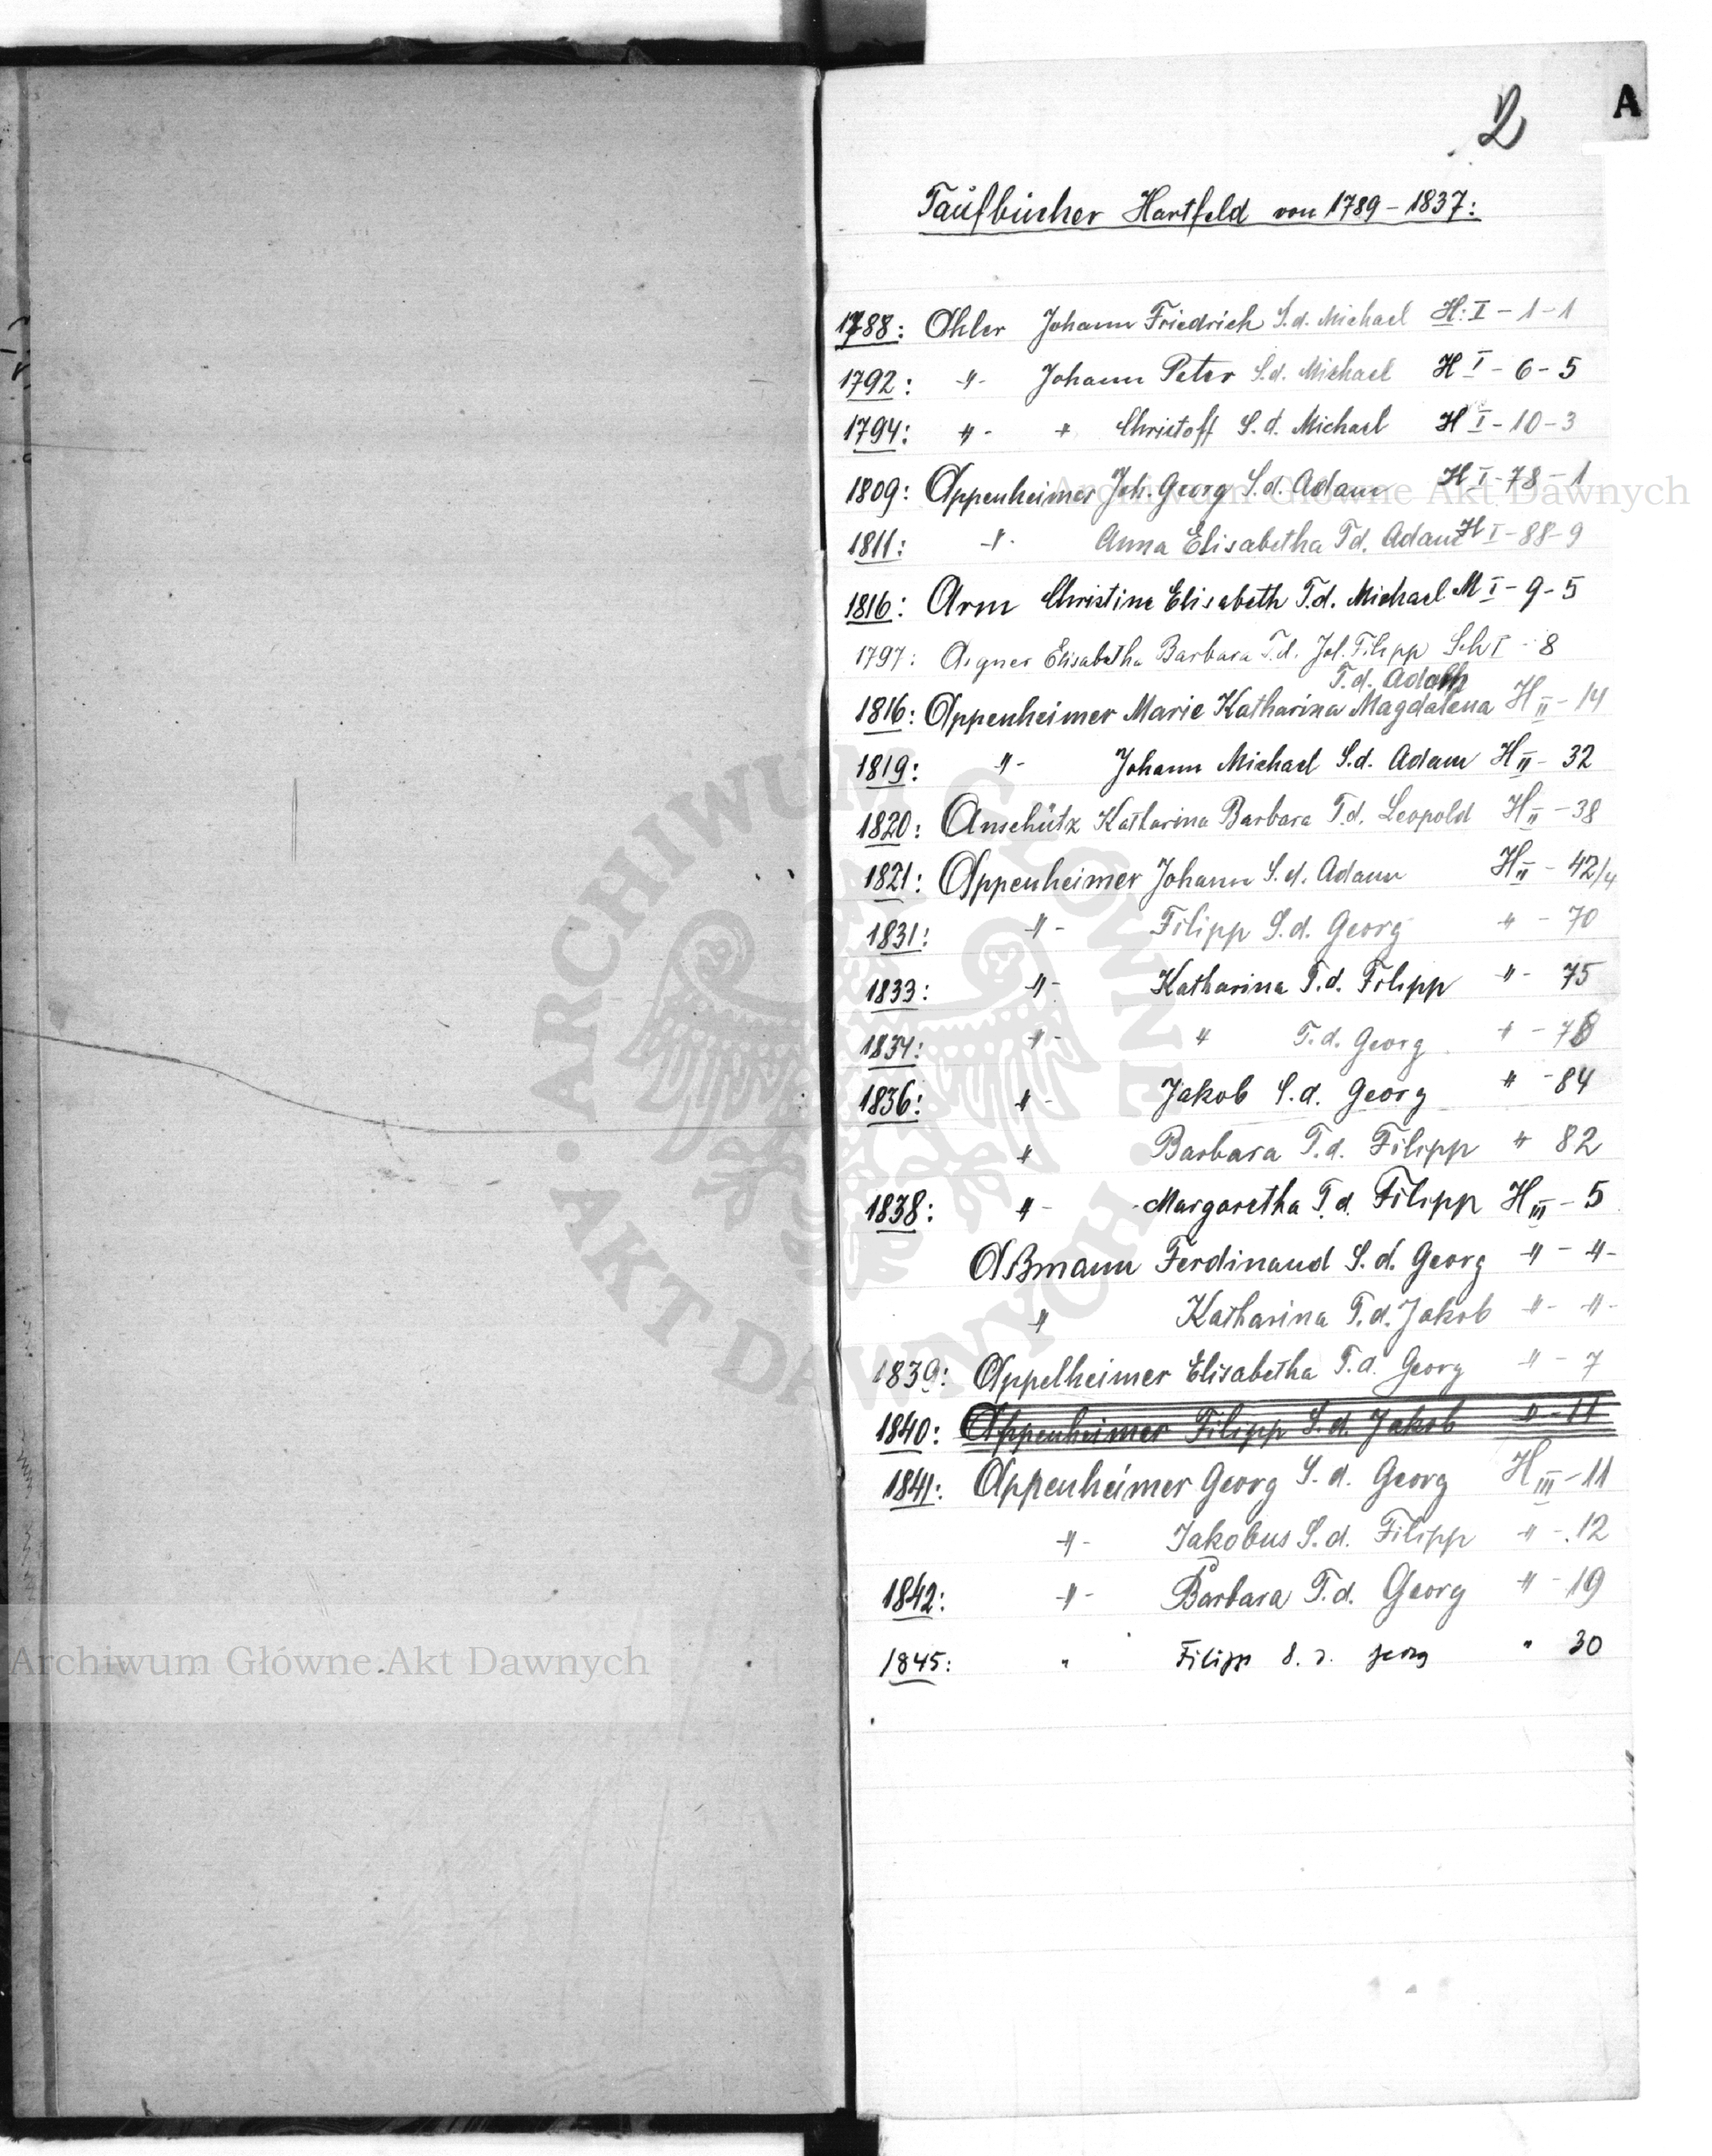 2
A
Taufbücher Hartfeld von 1789 - 1837:
1788: Ohler Johann Friedrich S.d. Michael H: I - 1 - 1
1792: -"- Johann Peter S.d. Michael H I - 6 - 5
1794: -"- " Christoff S.d. Michael H I - 10 - 3
1809: Appenheimer Joh. Georg S.d. Adam H I - 78 - 1
1811: -"- Anna Elisabetha T.d. Adam H I - 88 - 9
1816: Arm Christine Elisabeth T.d. Michael M I - 9 - 5
1797: Aigner Elisabetha Barbara T.d. Joh. Filipp Sch I - 8
T.d. Adam
1816: Appenheimer Marie Katharina Magdalena H II - 14
1819: -"- Johann Michael S.d. Adam H II - 32
1820: Anschütz Katharina Barbara T.d. Leopold H II - 38
1821: Appenheimer Johann S.d. Adam H II - 42/4
1831: -"- Filipp S.d. Georg " - 70
1833: -"- Katharina T.d. Filipp " - 75
1834: -"- " T.d. Georg " - 78
1836: " - Jakob S.d. Georg " - 84
" Barbara T.d. Filipp " 82
1838: " - Margaretha T.d. Filipp H III - 5
Aßmann Ferdinand S.d. Georg -"- -"-
" Katharina T.d. Jakob -"- -"-
1839: Appelheimer Elisabetha T.d. Georg -"- 7
1840: Appenheimer Filipp S.d. Jakob -"- 11
1841: Appenheimer Georg S.d. Georg H III - 11
-"- Jakobus S.d. Filipp -"- 12
1842: -"- Barbara T.d. Georg " - 19
1845: " Filipp S.d. Georg " 30
Archiwum Główne Akt Dawnych
Archiwum Główne Akt Dawnych
ARCHIWUM GŁÓWNE · AKT DAWNYCH ·